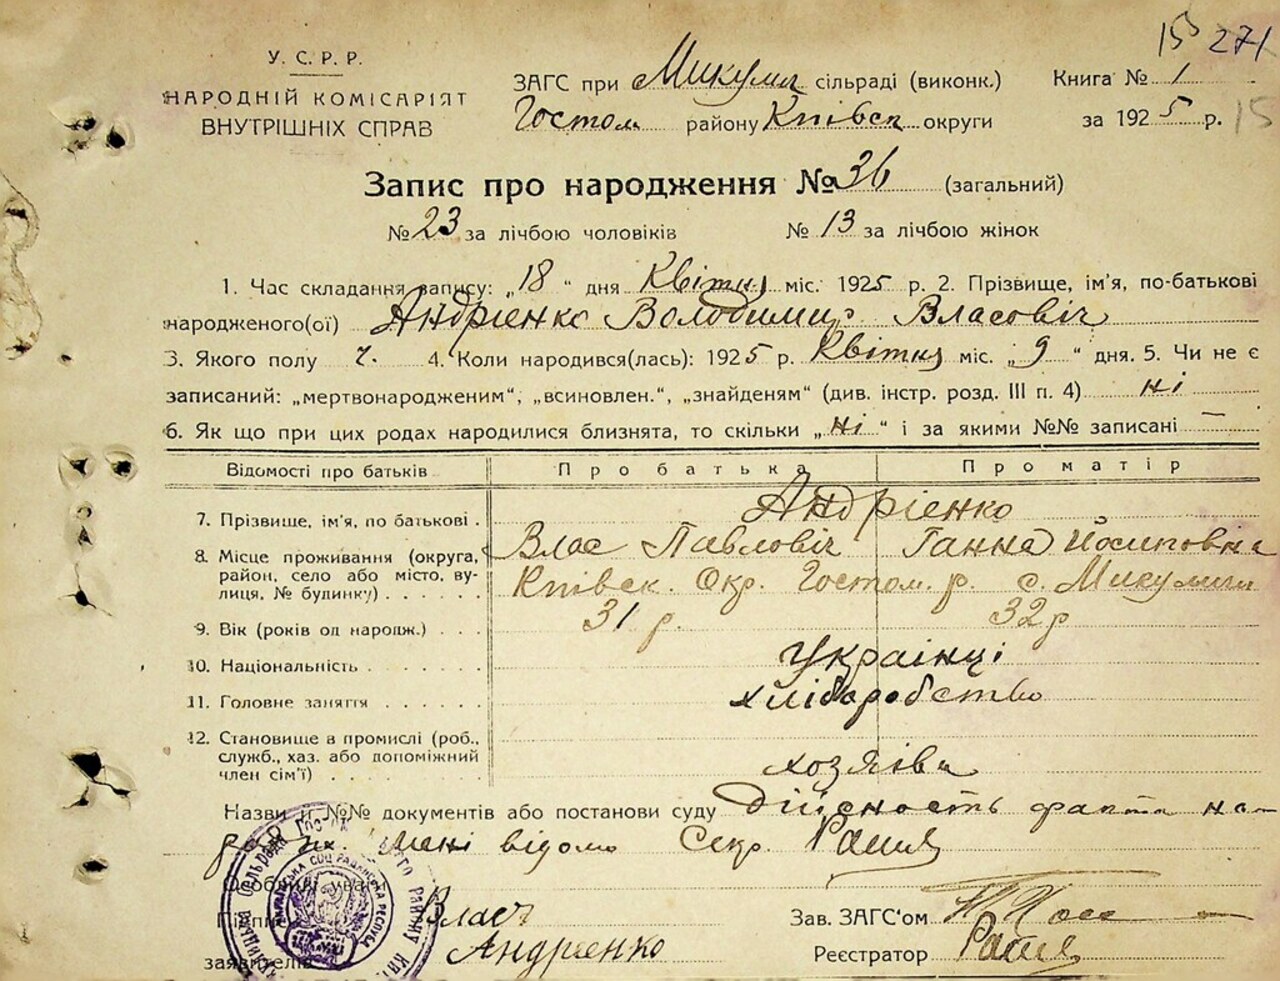 155 271
У. С. Р. Р.
НАРОДНІЙ КОМІСАРІЯТ
ВНУТРІШНІХ СПРАВ
ЗАГС при Микулиц сільраді (виконк.) Книга № 1
Гостом району Київск округи за 1925 р. 15
Запис про народження № 36 (загальний)
№ 23 за лічбою чоловіків № 13 за лічбою жінок
1. Час складання запису: „18“ дня Квітня міс. 1925 р. 2. Прізвище, ім'я, по-батькові
народженого(ої) Андрієнко Володимир Власовіч
3. Якого полу ч. 4. Коли народився(лась): 1925 р. Квітня міс. „9“ дня. 5. Чи не є
записаний: „мертвонародженим“, „всиновлен.“, „знайденям“ (див. інстр. розд. III п. 4) ні
6. Як що при цих родах народилися близнята, то скільки „ні“ і за якими №№ записані —
Відомості про батьків Про батька Про матір
7. Прізвище, ім'я, по батькові . Андрієнко
Влас Павловіч Ганна Йосиповна
8. Місце проживання (округа, район, село або місто, вулиця, № будинку) . . . . . Київск. Окр. Гостом. р. с. Микуличи
9. Вік (років од народж.) . . . 31 р. 32 р
10. Національність . . . . . . . Українці
11. Головне заняття . . . . . . хліборобство
12. Становище в промислі (роб.,
служб., хаз. або допоміжний
член сім'ї) . . . . . . . . хозяїва
Назви й №№ документів або постанови суду Дійсность факта на
мені відомо Секр.
Особливі уваги
Підписи Влас Зав. ЗАГС'ом
заявителів Андрієнко Реєстратор